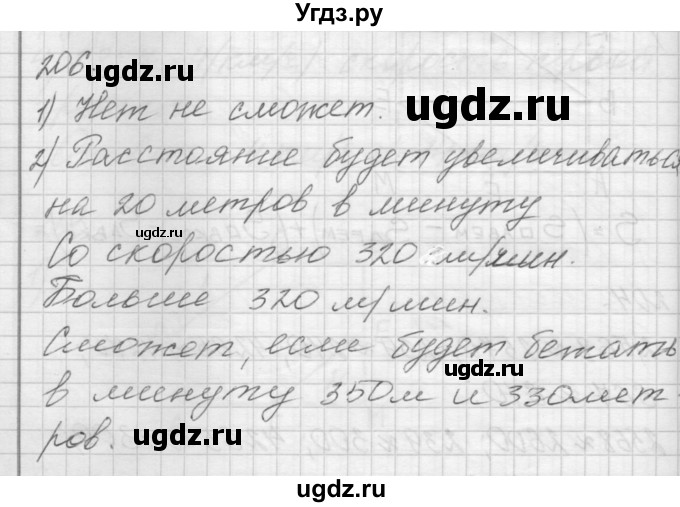 Угдз.ру
206
1) Нет не сможет.
2) Расстояние будет увеличиваться
на 20 метров в минуту
Со скоростью 320 м/мин.
Больше 320 м/мин.
Сможет, если будет бежать
в минуту 350м и 330мет-
ров.
ugdz.ru
ugdz.ru
ugdz.ru
ugdz.ru
ugdz.ru
ugdz.ru
ugdz.ru